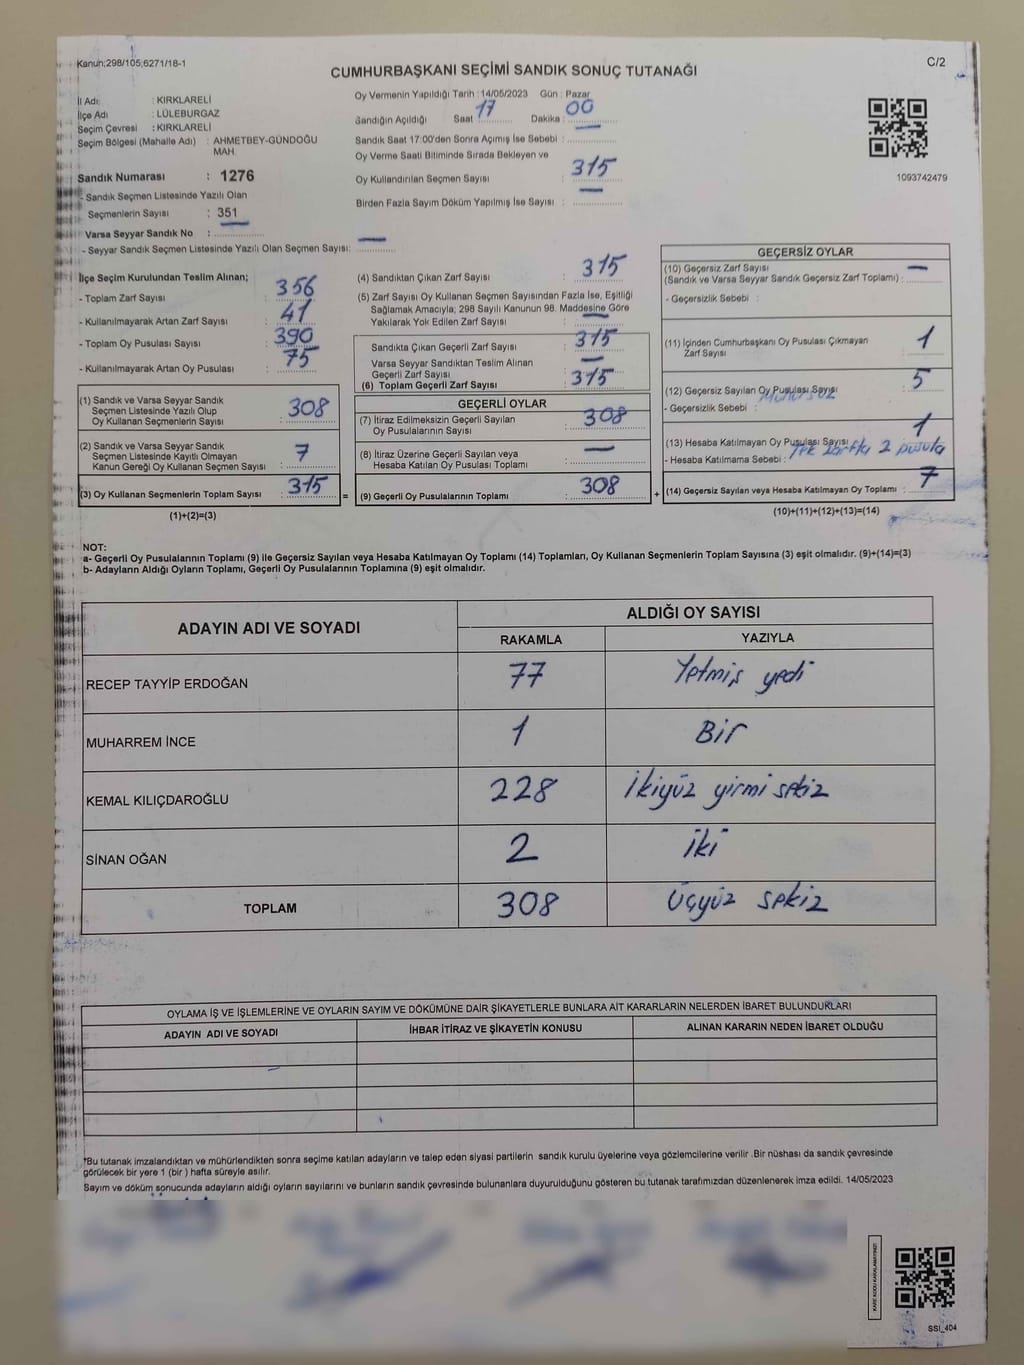 Kanun:298/105;6271/18-1
C/2
CUMHURBAŞKANI SEÇİMİ SANDIK SONUÇ TUTANAĞI
İl Adı : KIRKLARELİ
İlçe Adı : LÜLEBURGAZ
Seçim Çevresi : KIRKLARELİ
Seçim Bölgesi (Mahalle Adı) : AHMETBEY-GÜNDOĞU
MAH.
Sandık Numarası : 1276
- Sandık Seçmen Listesinde Yazılı Olan
Seçmenlerin Sayısı : 351
Varsa Seyyar Sandık No :
- Seyyar Sandık Seçmen Listesinde Yazılı Olan Seçmen Sayısı: —
Oy Vermenin Yapıldığı Tarih : 14/05/2023 Gün : Pazar
Sandığın Açıldığı Saat : 17 Dakika : 00
Sandık Saat 17:00'den Sonra Açımış İse Sebebi : —
Oy Verme Saati Bitiminde Sırada Bekleyen ve
Oy Kullandırılan Seçmen Sayısı : 315
Birden Fazla Sayım Döküm Yapılmış İse Sayısı : —
1093742479
İlçe Seçim Kurulundan Teslim Alınan;
- Toplam Zarf Sayısı : 356
- Kullanılmayarak Artan Zarf Sayısı : 41
- Toplam Oy Pusulası Sayısı : 390
- Kullanılmayarak Artan Oy Pusulası : 75
(1) Sandık ve Varsa Seyyar Sandık
Seçmen Listesinde Yazılı Olup
Oy Kullanan Seçmenlerin Sayısı : 308
(2) Sandık ve Varsa Seyyar Sandık
Seçmen Listesinde Kayıtlı Olmayan
Kanun Gereği Oy Kullanan Seçmen Sayısı : 7
(3) Oy Kullanan Seçmenlerin Toplam Sayısı : 315
(1)+(2)=(3)
=
(4) Sandıktan Çıkan Zarf Sayısı : 315
(5) Zarf Sayısı Oy Kullanan Seçmen Sayısından Fazla İse, Eşitliği
Sağlamak Amacıyla, 298 Sayılı Kanunun 98. Maddesine Göre
Yakılarak Yok Edilen Zarf Sayısı : —
Sandıkta Çıkan Geçerli Zarf Sayısı : 315
Varsa Seyyar Sandıktan Teslim Alınan
Geçerli Zarf Sayısı : —
(6) Toplam Geçerli Zarf Sayısı : 315
GEÇERLİ OYLAR
(7) İtiraz Edilmeksizin Geçerli Sayılan
Oy Pusulalarının Sayısı : 308
(8) İtiraz Üzerine Geçerli Sayılan veya
Hesaba Katılan Oy Pusulası Toplamı : —
(9) Geçerli Oy Pusulalarının Toplamı : 308
+
GEÇERSİZ OYLAR
(10) Geçersiz Zarf Sayısı
(Sandık ve Varsa Seyyar Sandık Geçersiz Zarf Toplamı) : —
- Geçersizlik Sebebi :
(11) İçinden Cumhurbaşkanı Oy Pusulası Çıkmayan
Zarf Sayısı : 1
(12) Geçersiz Sayılan Oy Pusulası Sayısı : 5
- Geçersizlik Sebebi : Mühürsüz
(13) Hesaba Katılmayan Oy Pusulası Sayısı : 1
- Hesaba Katılmama Sebebi : Tek zarfta 2 pusula
(14) Geçersiz Sayılan veya Hesaba Katılmayan Oy Toplamı : 7
(10)+(11)+(12)+(13)=(14)
NOT:
a- Geçerli Oy Pusulalarının Toplamı (9) ile Geçersiz Sayılan veya Hesaba Katılmayan Oy Toplamı (14) Toplamları, Oy Kullanan Seçmenlerin Toplam Sayısına (3) eşit olmalıdır. (9)+(14)=(3)
b- Adayların Aldığı Oyların Toplamı, Geçerli Oy Pusulalarının Toplamına (9) eşit olmalıdır.
ADAYIN ADI VE SOYADI ALDIĞI OY SAYISI
RAKAMLA YAZIYLA
RECEP TAYYİP ERDOĞAN 77 Yetmiş yedi
MUHARREM İNCE 1 Bir
KEMAL KILIÇDAROĞLU 228 İkiyüz yirmi sekiz
SİNAN OĞAN 2 İki
TOPLAM 308 Üçyüz sekiz
OYLAMA İŞ VE İŞLEMLERİNE VE OYLARIN SAYIM VE DÖKÜMÜNE DAİR ŞİKAYETLERLE BUNLARA AİT KARARLARIN NELERDEN İBARET BULUNDUKLARI
ADAYIN ADI VE SOYADI İHBAR İTİRAZ VE ŞİKAYETİN KONUSU ALINAN KARARIN NEDEN İBARET OLDUĞU
*Bu tutanak imzalandıktan ve mühürlendikten sonra seçime katılan adayların ve talep eden siyasi partilerin sandık kurulu üyelerine veya gözlemcilerine verilir .Bir nüshası da sandık çevresinde
görülecek bir yere 1 (bir ) hafta süreyle asılır.
Sayım ve döküm sonucunda adayların aldığı oyların sayılarını ve bunların sandık çevresinde bulunanlara duyurulduğunu gösteren bu tutanak tarafımızdan düzenlenerek imza edildi. 14/05/2023
KARE KODU KARALAMAYINIZ!
SSI_404